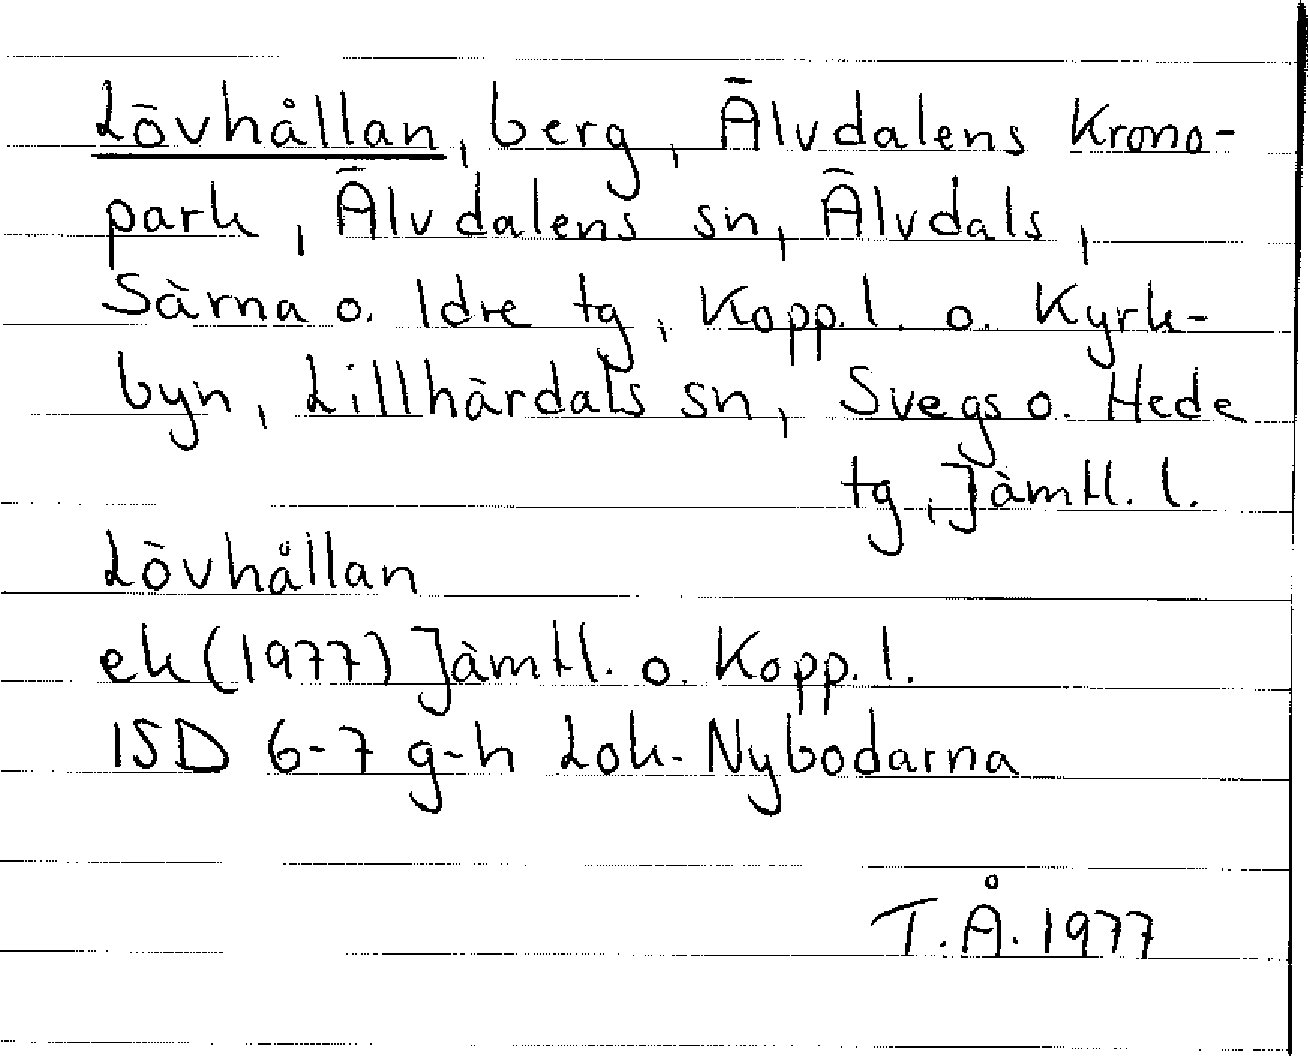 Lövhållan, berg, Älvdalens Krono-
park, Älvdalens sn, Älvdals,
Särna o. Idre tg, Kopp. l. o. Kyrk-
byn, Lillhärdals sn, Svegs o. Hede
tg, Jämtl. l.
Lövhållan
ek (1977) Jämtl. o. Kopp. l.
15D 6-7 g-h Lok-Nybodarna
T.Å. 1977